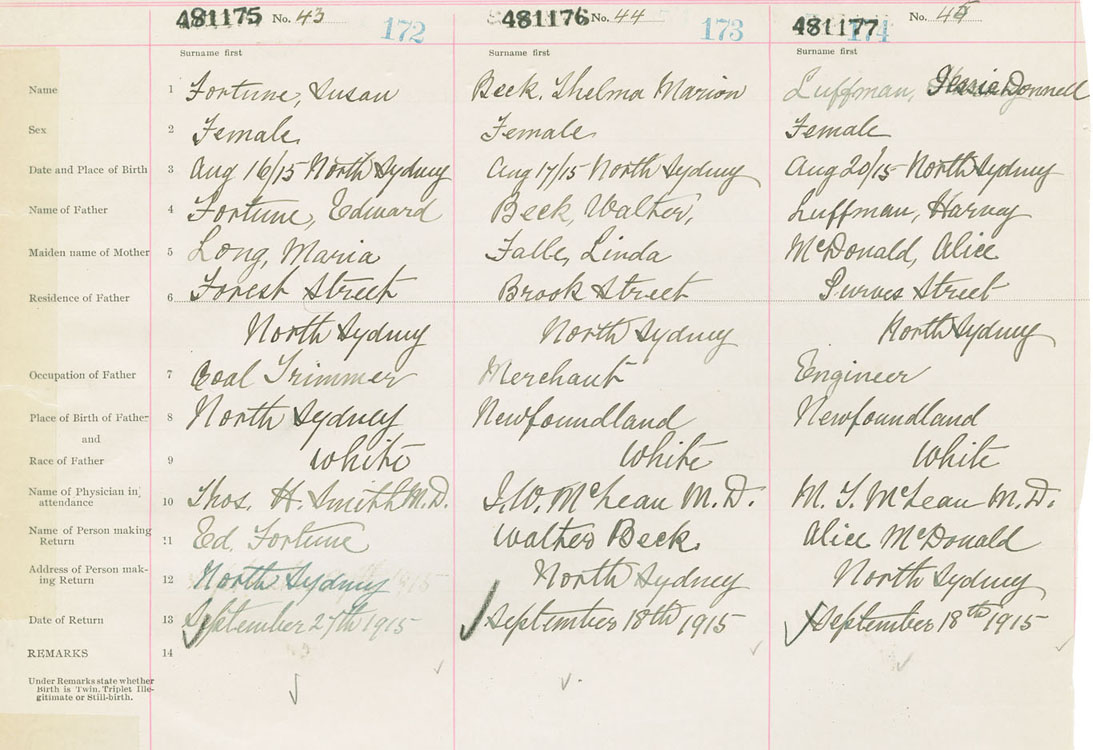 481175 No. 43 172 481176 No. 44 173 481177 No. 45 174
Surname first Surname first Surname first
Name 1 Fortune, Susan Beck, Thelma Marion Luffman, Donnell
Sex 2 Female Female Female
Date and Place of Birth 3 Aug 16/15 North Sydney Aug 17/15 North Sydney Aug 20/15 North Sydney
Name of Father 4 Fortune, Edward Beck, Walter, Luffman, Harvey
Maiden name of Mother 5 Long, Maria Falle, Linda McDonald, Alice
Residence of Father 6 Forest Street Brook Street Purves Street
North Sydney North Sydney North Sydney
Occupation of Father 7 Coal Trimmer Merchant Engineer
Place of Birth of Father 8 North Sydney Newfoundland Newfoundland
and
Race of Father 9 White White White
Name of Physician in
attendance 10 Thos. H. Smith M.D. McLean M.D. M. T. McLean M.D.
Name of Person making
Return 11 Ed. Fortune Walter Beck. Alice McDonald
Address of Person mak-
ing Return 12 North Sydney North Sydney North Sydney
Date of Return 13 September 27th 1915 September 18th 1915 September 18th 1915
REMARKS 14
Under Remarks state whether
Birth is Twin. Triplet Ille-
gitimate or Still-birth.